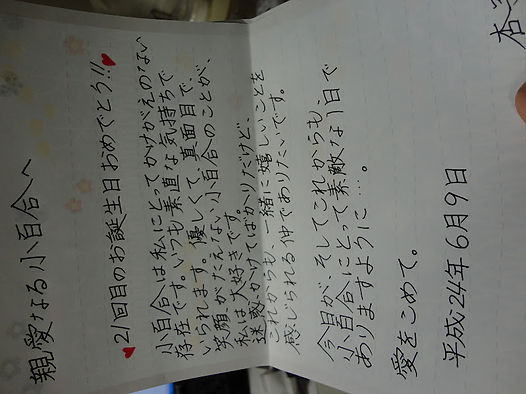 親愛なる小百合へ
21回目のお誕生日おめでとう!!
小百合は私にとってかけがえのない
存在です。いつも素直な気持ちで
いられます。優しくて、真面目で、
笑顔がたえない小百合のことが、
私は大好きです。
迷惑かけてばかりだけど、
これからも、一緒に嬉しいことを
感じられる仲でありたいです。
今日が、そしてこれからも、
小百合にとって素敵な1日で
ありますように…。
愛をこめて。
平成24年6月9日